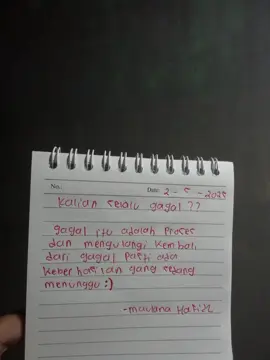 No.
Date: 2 - 5 - 2025
Kalian selalu gagal ??
gagal itu adalah proses
dan mengulangi kembali
dari gagal pasti ada
keberhasilan yang sedang
menunggu :)
- maulana Hafizh